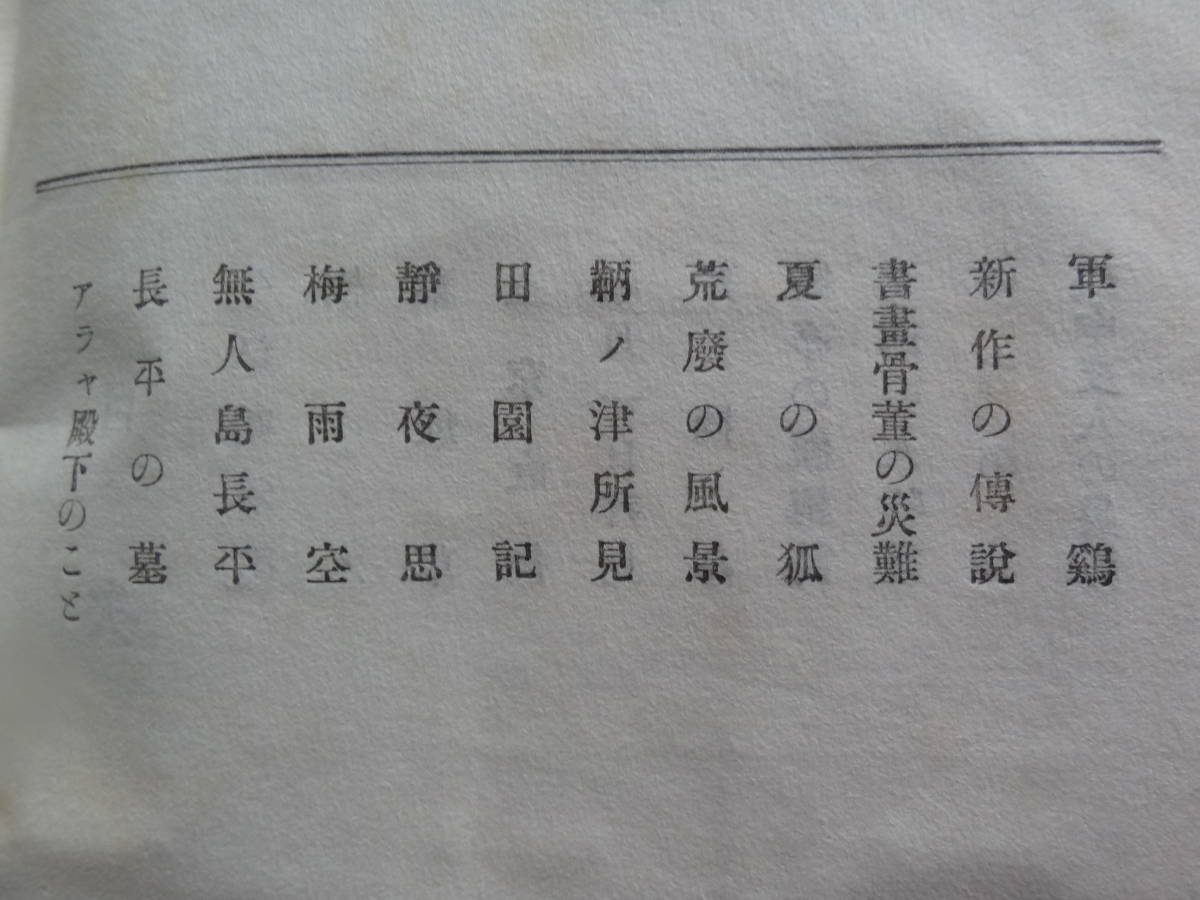 軍鷄
新作の傳說
書畫骨董の災難
夏の狐
荒廢の風景
鞆ノ津所見
田園記
靜夜思
梅雨空
無人島長平
長平の墓
アラヤ殿下のこと